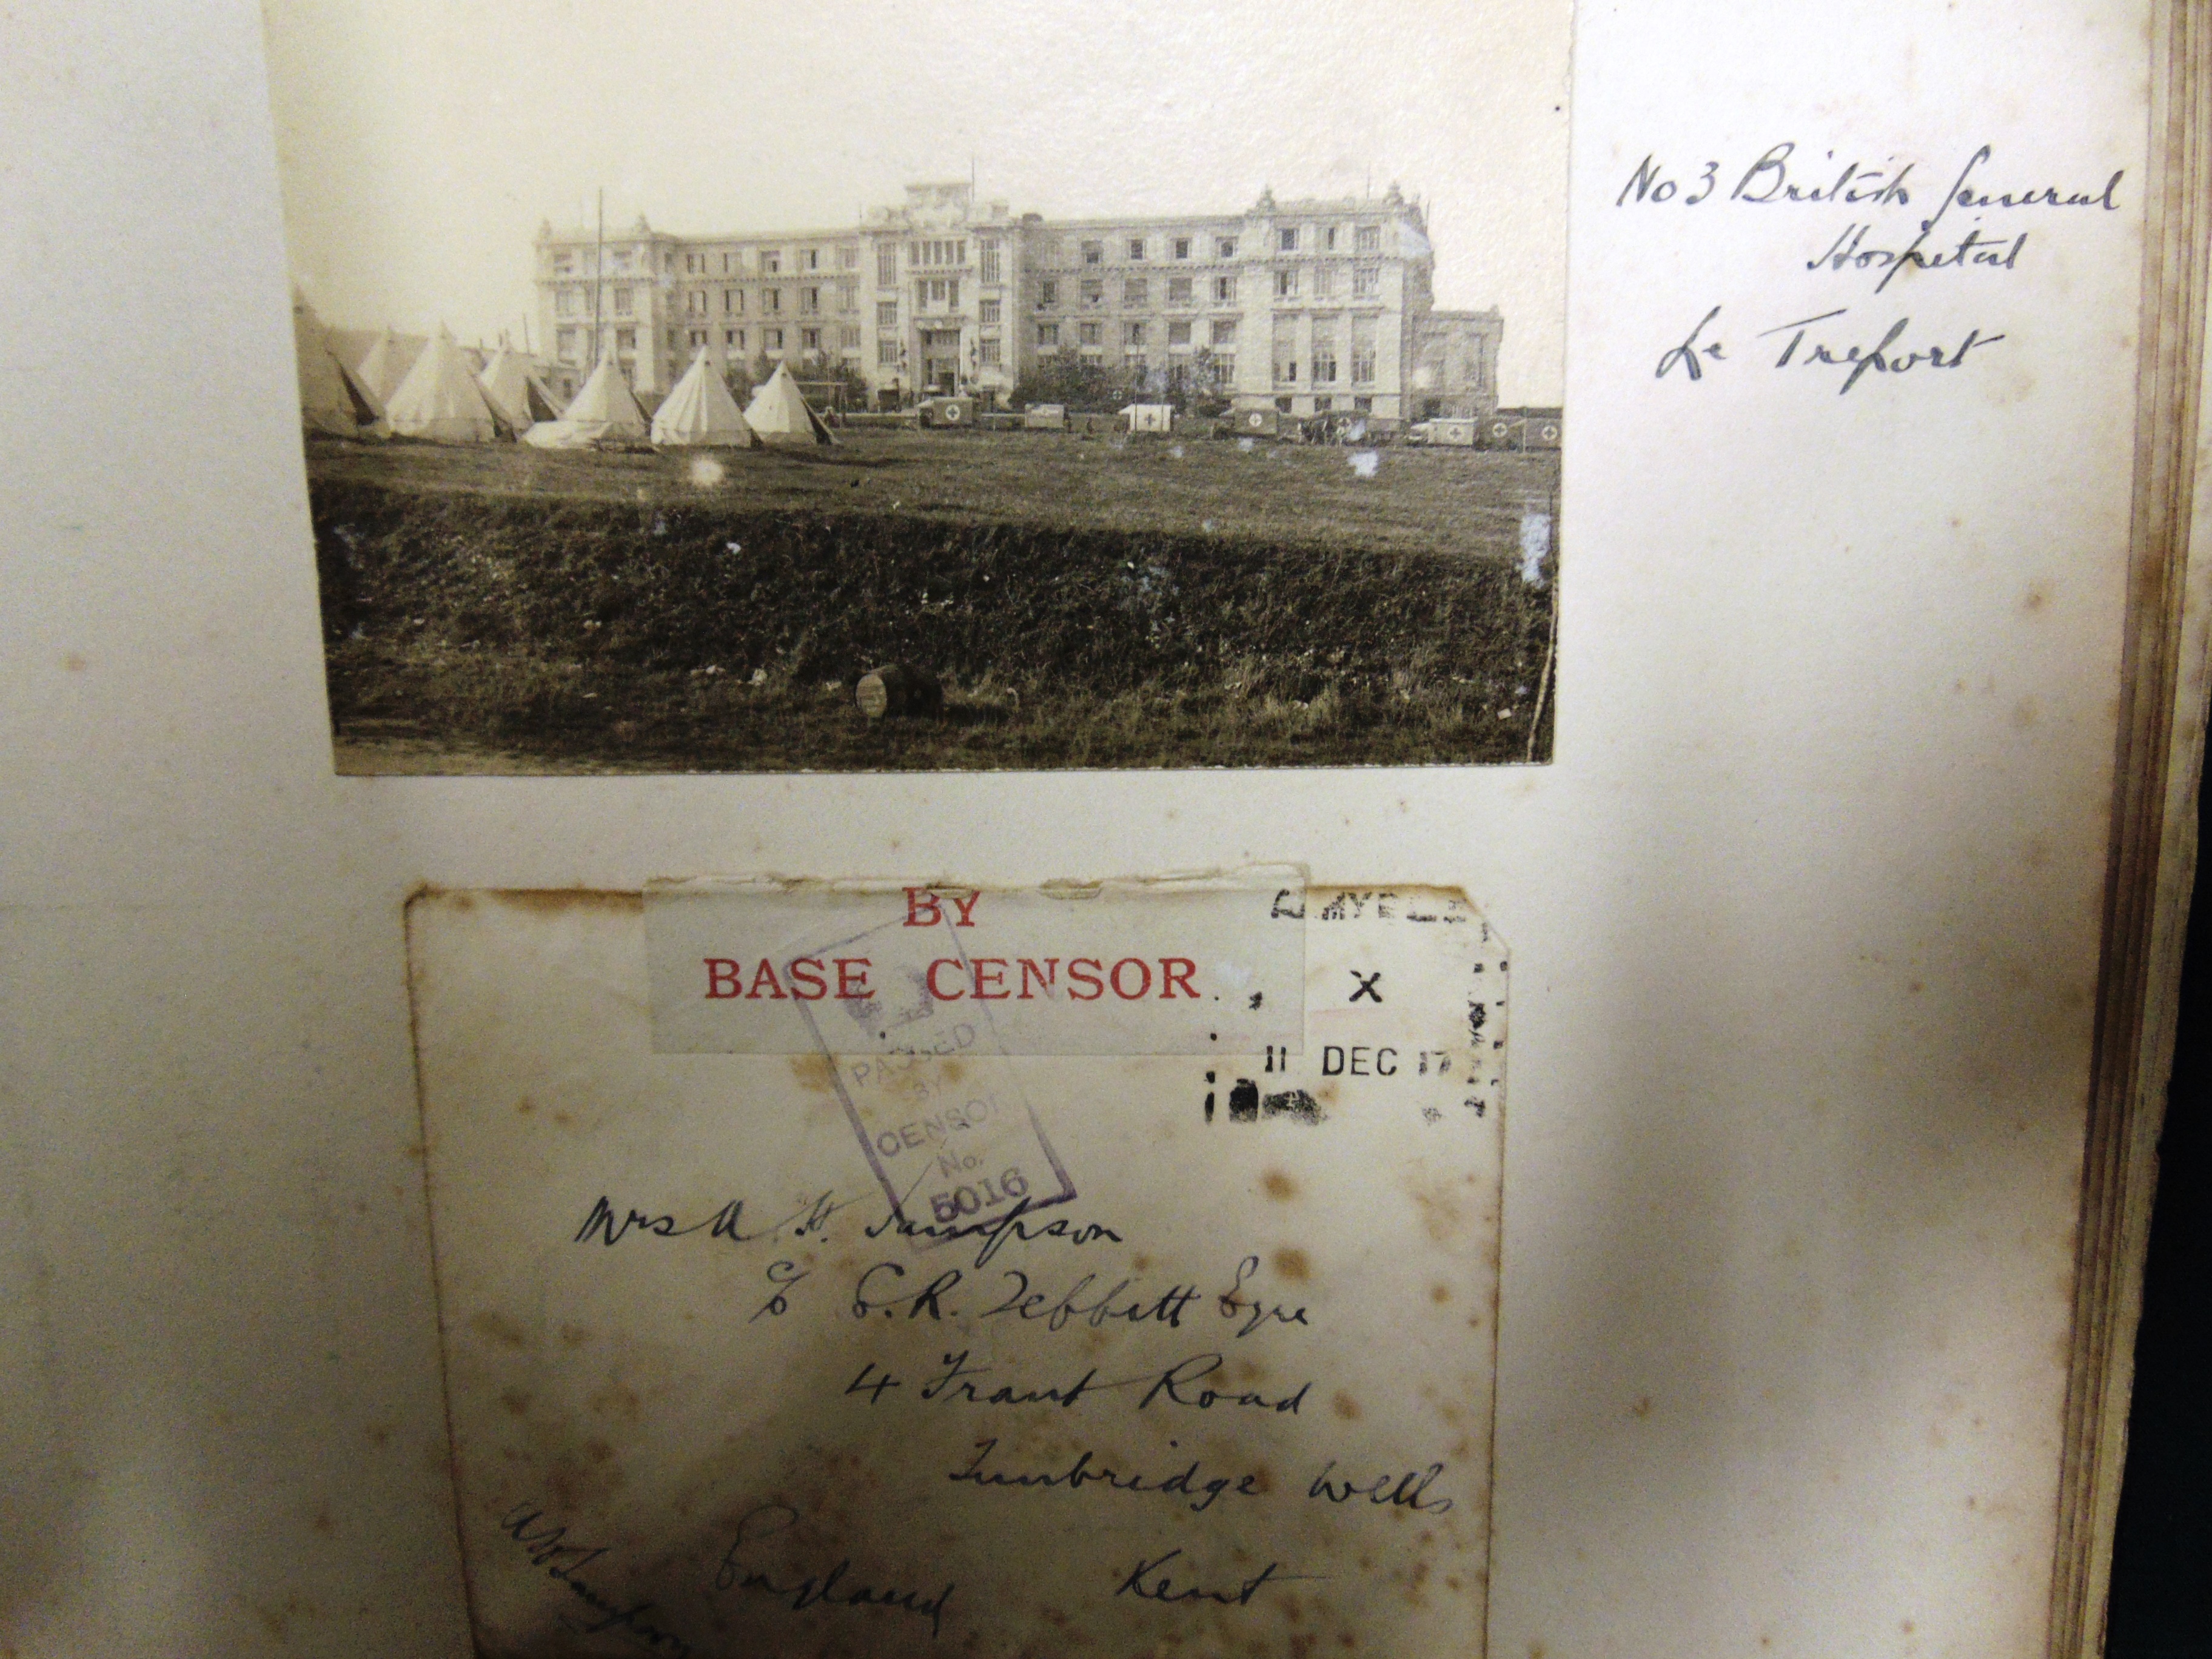 No 3 British General
Hospital
Le Treport
BY
BASE CENSOR.
X
11 DEC 17
PASSED
BY
CENSOR
No.
5016
Mrs A H. Sampson
c/o E.R. Tebbitt Esqre
4 Frant Road
Tunbridge Wells
England Kent